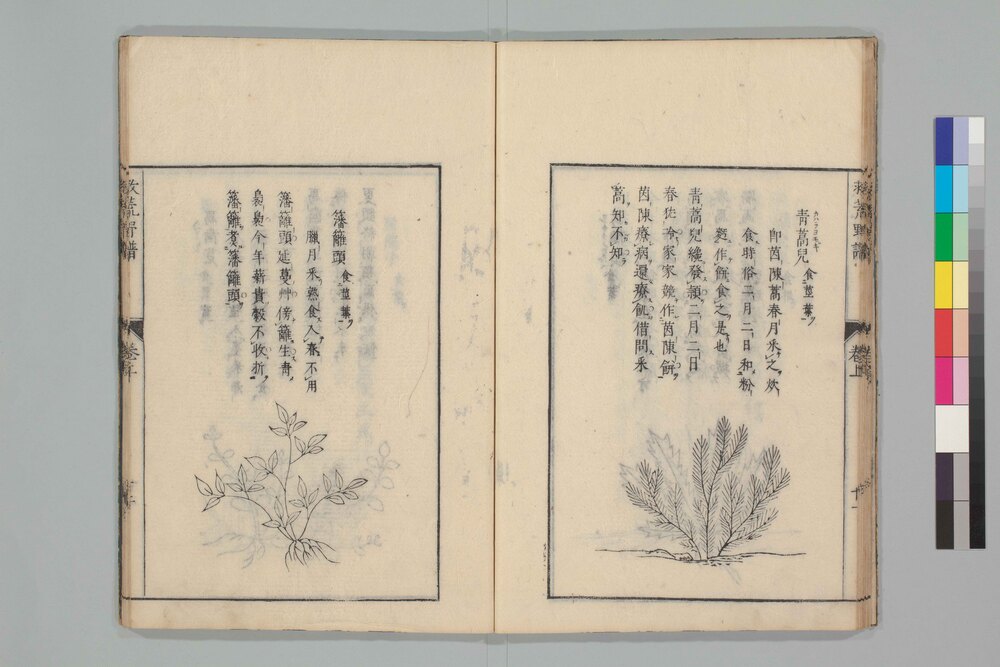 青蒿兒 食莖葉
カハラヨモギ
即茵陳蒿春月釆之炊
食時俗二月二日和粉
麪作餅食之是也
青蒿兒纔發頴二月二日
春猶冷家家競作茵陳餅
茵陳療病還療飢借問釆
蒿知不知
籓籬頭 食莖葉
臘月釆熟食入春不用
籓籬頭延蔓艸傍籬生青
裊裊今年薪貴穀不收折
籓籬煮籓籬頭
救荒野譜
卷上